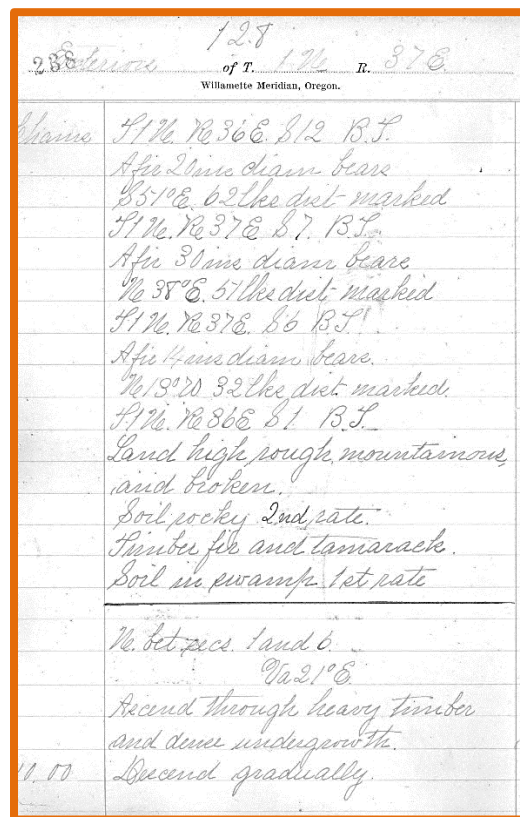 128
238 Exteriors of T. 1 N. R. 37 E.
Willamette Meridian, Oregon.
Chains T1N. R36E. S12 B.T.
A fir 20 ins diam bears
S51°E. 62 lks dist marked
T1N. R37E S7. B.T.
A fir 30 ins diam bears
N38°E. 51 lks dist. marked
T1N. R37E. S6 B.T.
A fir 14 ins diam bears.
32 lks dist. marked.
T1N. R36E S1. B.T.
Land high, rough, mountainous,
and broken.
Soil rocky 2nd rate.
Timber fir and tamarack.
Soil in swamp 1st rate
N. bet secs. 1 and 6.
Va 21°E.
Ascend through heavy timber
and dense undergrowth.
10.00 Descend gradually.